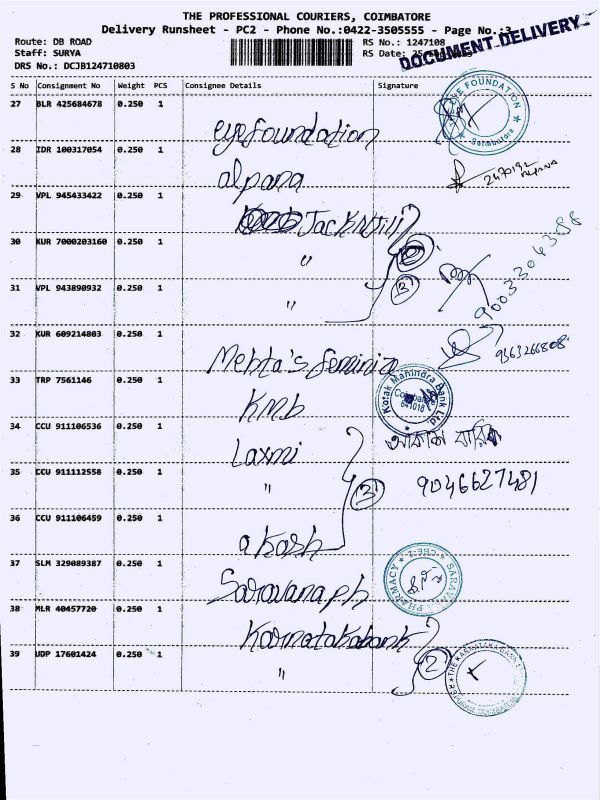 THE PROFESSIONAL COURIERS, COIMBATORE
Delivery Runsheet - PC2 - Phone No.:0422-3505555 - Page No.:3
Route: DB ROAD RS No.: 1247108
Staff: SURYA RS Date:
DOCUMENT DELIVERY
DRS No.: DCJB124710803
S No Consignment No Weight PCS Consignee Details Signature
27 BLR 425684678 0.250 1 eyefoundation
EYE FOUNDATION Coimbatore
28 IDR 100317054 0.250 1 alpana
29 VPL 945433422 0.250 1 Jack N Jill
30 KUR 7000203160 0.250 1 "
31 VPL 943890932 0.250 1 " 3
9003304388
32 KUR 609214803 0.250 1 Mehta's feminiza
9363266808
33 TRP 7561146 0.250 1 KMB
Kotak Mahindra Bank Ltd. Coimbatore 641018
34 CCU 911106536 0.250 1 Laxmi
35 CCU 911112558 0.250 1 " 3 9046627481
36 CCU 911106459 0.250 1 akash
37 SLM 329089387 0.250 1 Saravana ph
PHARMACY CBE-2
38 MLR 40457720 0.250 1 Karnatakabank
39 UDP 17601424 0.250 1 " 2
THE KARNATAKA BANK